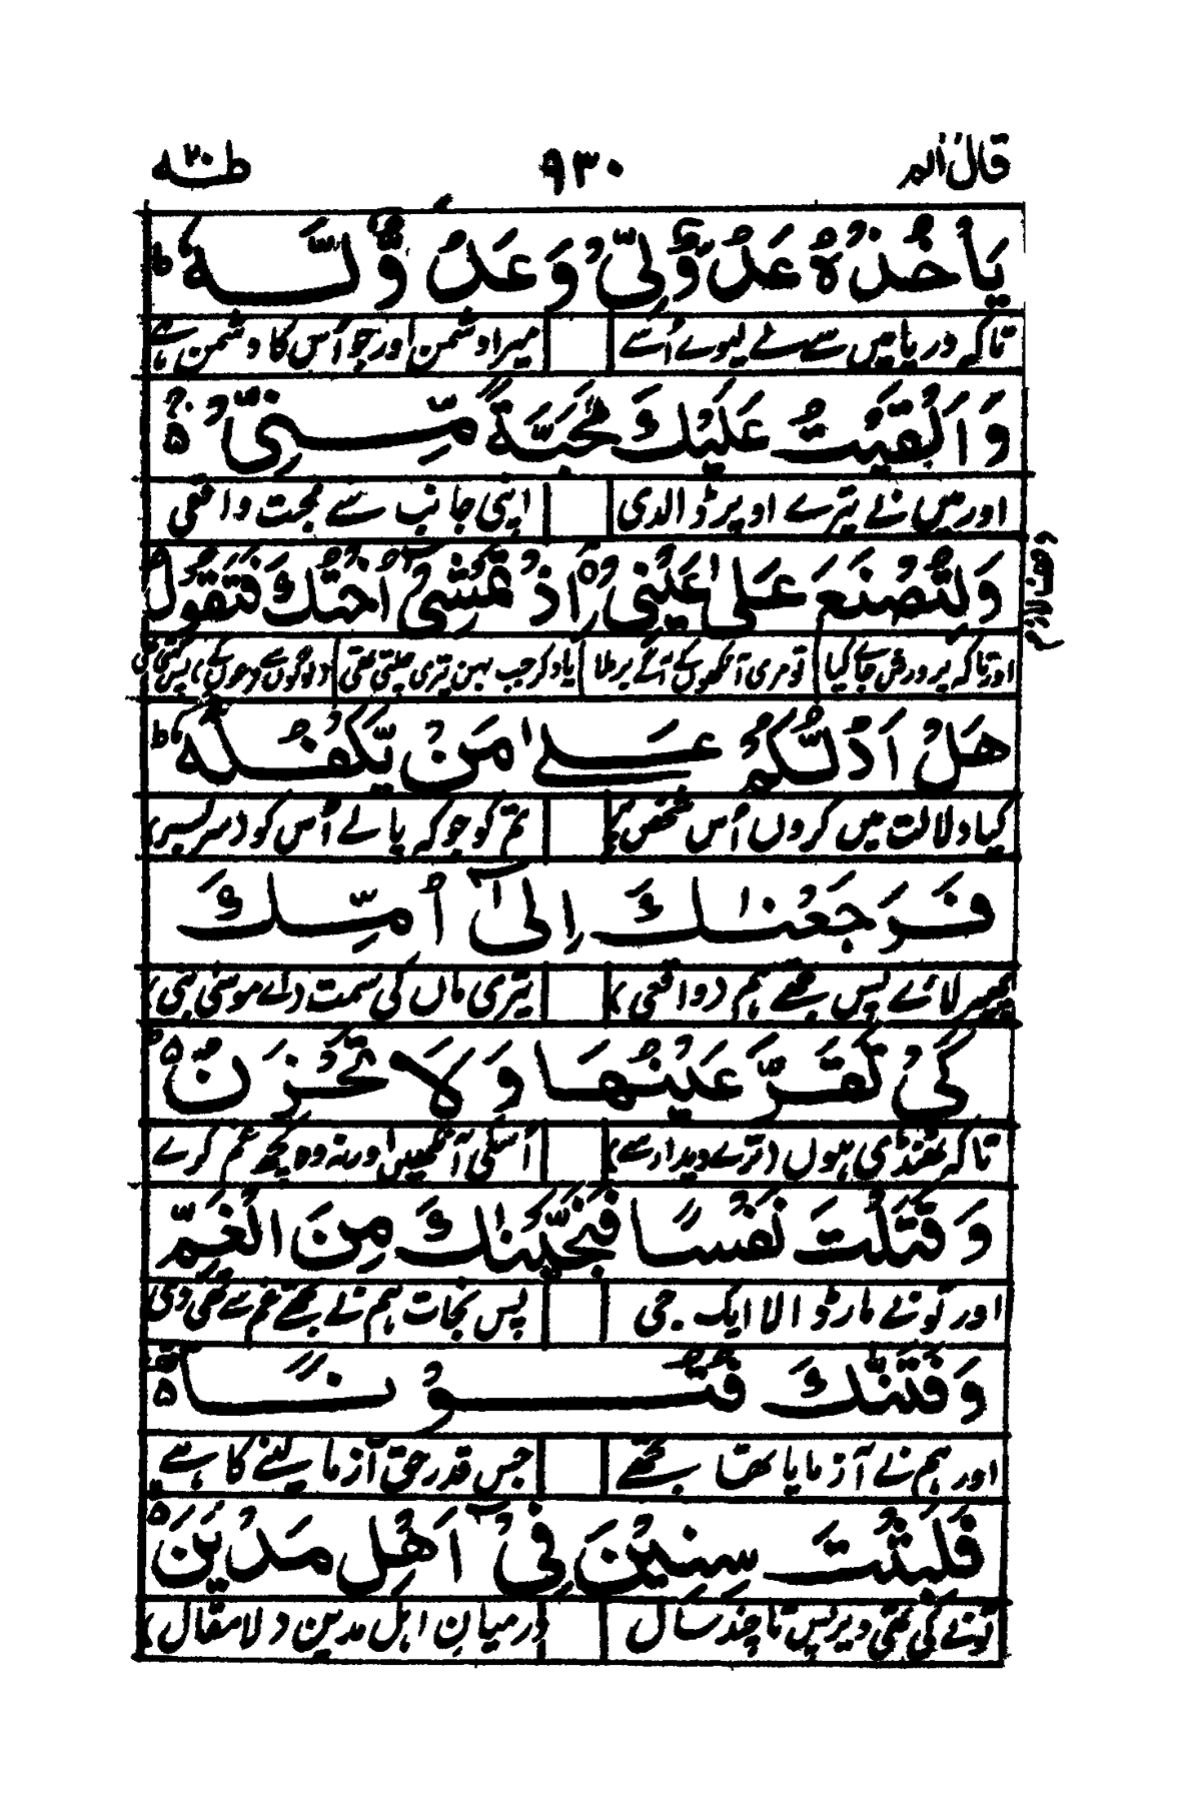 قال الم ۹۳۰ طٰهٰ ۲۰
يَاْخُذْهُ عَدُوٌّ لِّيْ وَعَدُوٌّ لَّهٗ ؕ
تاکہ دریا میں سے لے لیوے اُسے میرا دشمن اور جو اُس کا دشمن ہے
وَاَلْقَيْتُ عَلَيْكَ مَحَبَّةً مِّنِّيْ ۵
اور میں نے تیرے اوپر ڈالدی اپنی جانب سے محبت واقعی
وَلِتُصْنَعَ عَلٰى عَيْنِيْ ۘ اِذْ تَمْشِيْٓ اُخْتُكَ فَتَقُوْلُ
اور تاکہ پرورش جائے کیا تو مری آنکھوں کے آگے برملا یاد کر جب بہن تیری چلتی تھی (لوگوں سے فرعوں کے) پس کہتی تھی
هَلْ اَدُلُّكُمْ عَلٰى مَنْ يَّكْفُلُهٗ ؕ
کیا دلالت میں کروں اُس شخص پر تم کو جو کہ پالے اُس کو (سر بسر)
فَرَجَعْنٰكَ اِلٰٓى اُمِّكَ
پھیر لائے پس تجھے ہم (واقعی) تیری ماں کی سمت (اے موسٰی نبی)
كَيْ تَقَرَّ عَيْنُهَا وَلَا تَحْزَنَ ۵
تاکہ ٹھنڈی ہوں (ترے دیدار سے) اُسکی آنکھیں اور نہ وہ کچھ غم کرے
وَقَتَلْتَ نَفْسًا فَنَجَّيْنٰكَ مِنَ الْغَمِّ
اور تو نے مار ڈالا ایک جی پس نجات ہم نے تجھے غم سے تھی دی
وَفَتَنّٰكَ فُتُوْنًا ۵
اور ہم نے آزمایا تھا تجھے جس قدر حق آزمالینے کا ہے
فَلَبِثْتَ سِنِيْنَ فِيْٓ اَهْلِ مَدْيَنَ ۵
تو نے کی تھی دیر پس تا چند سال درمیانِ اہل مدین (لا مقال)